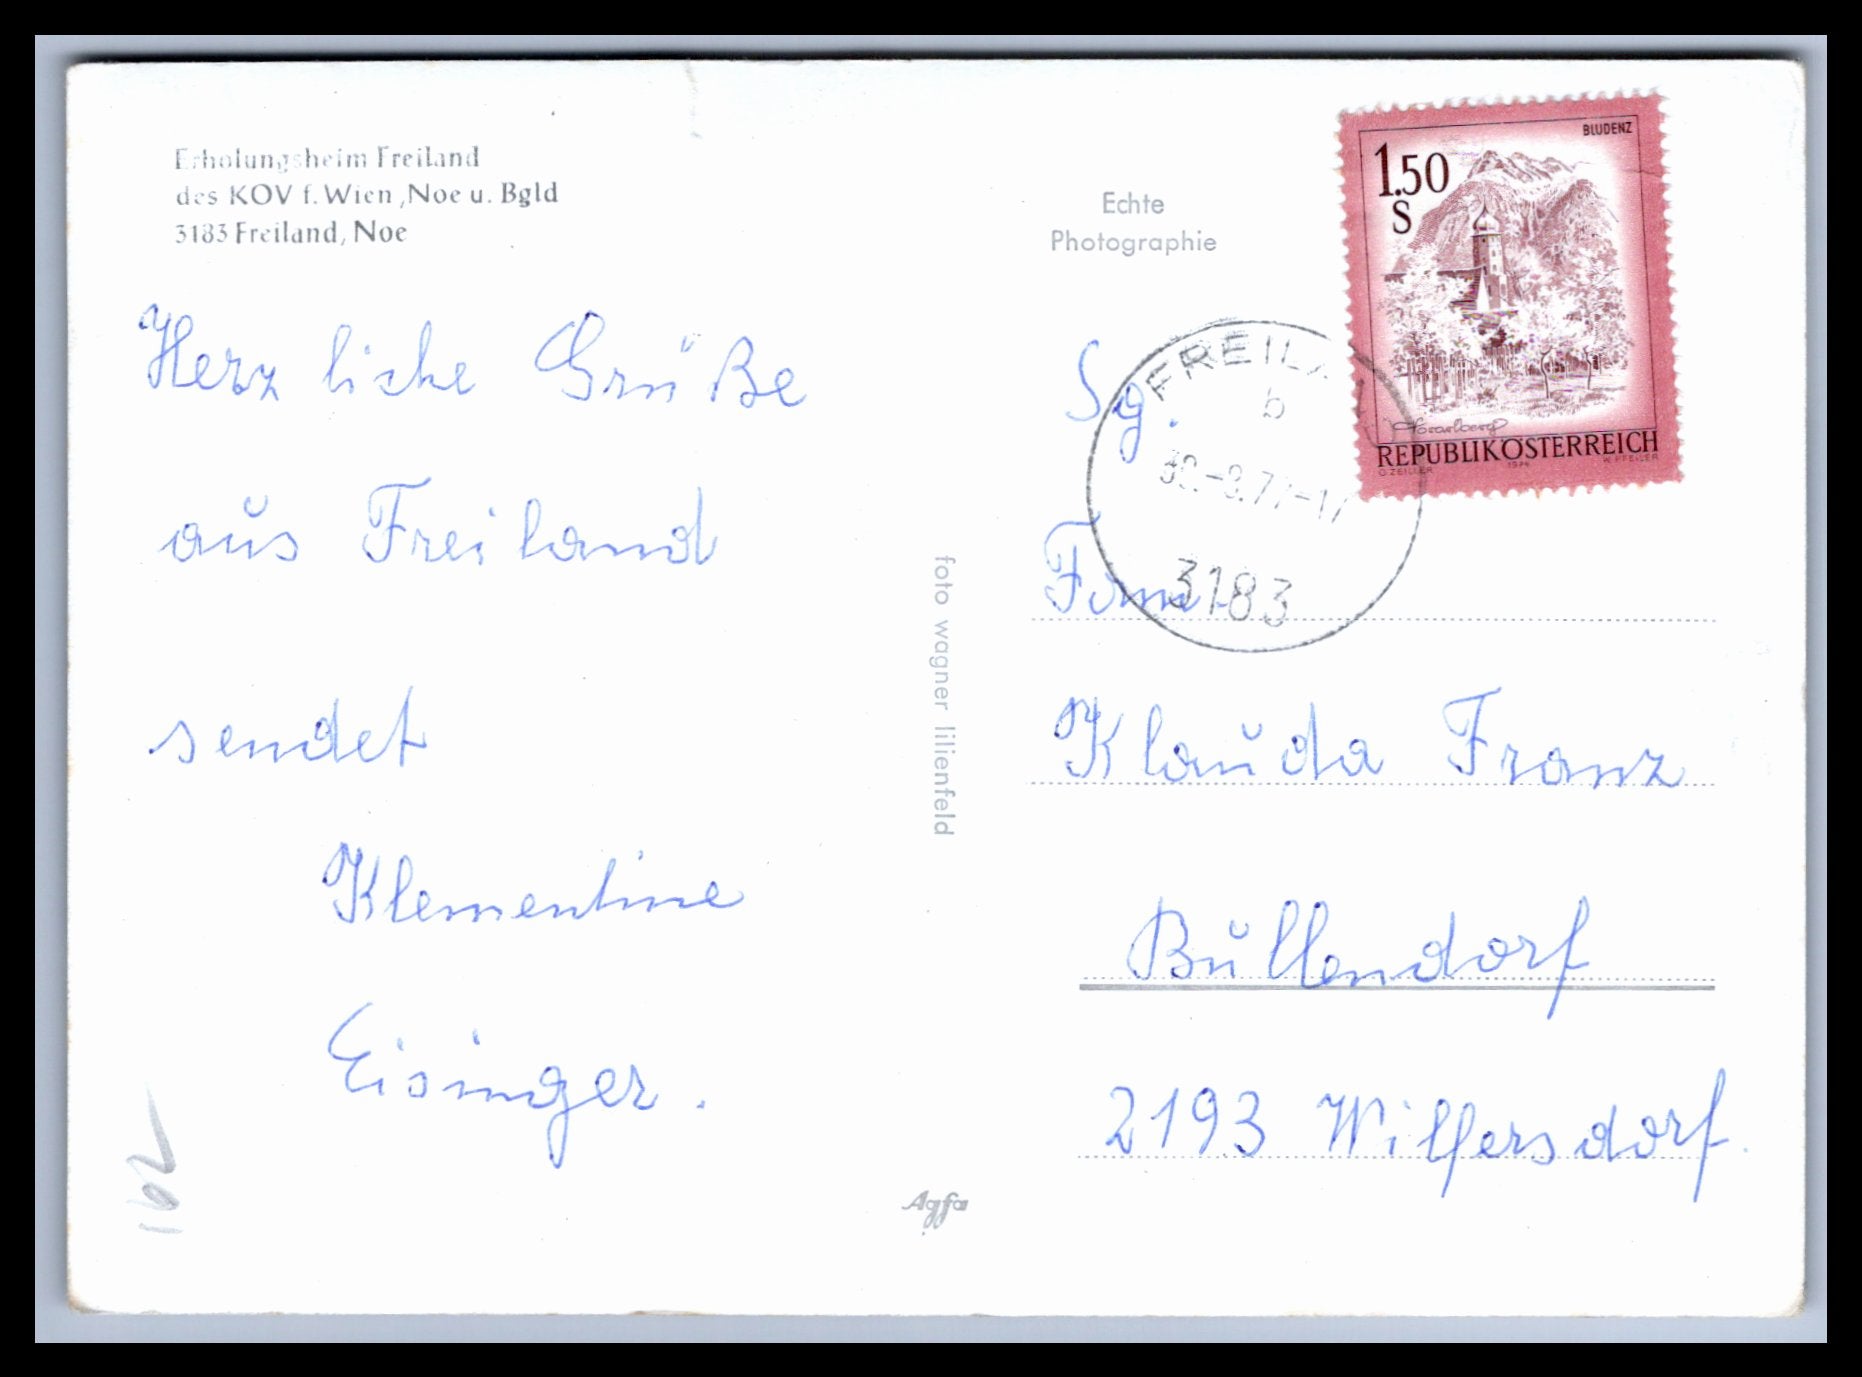 Erholungsheim Freiland
des KOV f. Wien, Noe u. Bgld
3183 Freiland, Noe
Herzliche Grüße
aus Freiland
sendet
Klementine
Eisinger.
162
foto wagner lilienfeld
Agfa
Echte
Photographie
BLUDENZ
1.50
S
Vorarlberg
REPUBLIK ÖSTERREICH
O. ZEILLER 1974 W. PFEILER
b
77-17
3183
Sg.
Fam.
Klauda Franz
Bullendorf
2193 Wilfersdorf.